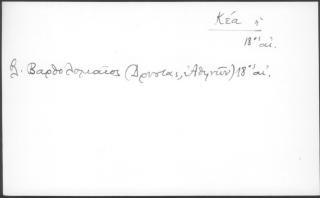 Κέα
18ος αἰ.
Βαρθολομαῖος (Δρύστας, Ἀθηνῶν) 18ος αἰ.